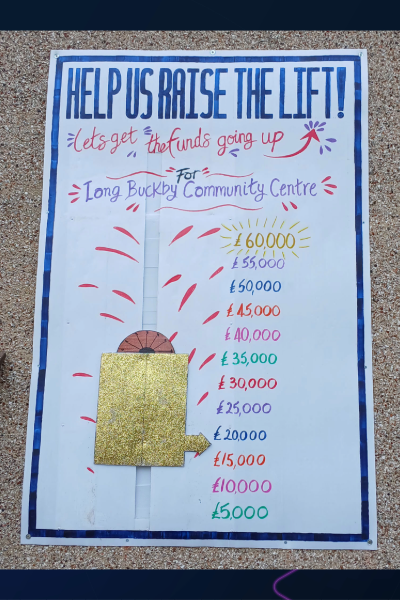 HELP US RAISE THE LIFT!
Let's get the funds going up
For
Long Buckby Community Centre
£60,000
£55,000
£50,000
£45,000
£40,000
£35,000
£30,000
£25,000
£20,000
£15,000
£10,000
£5,000